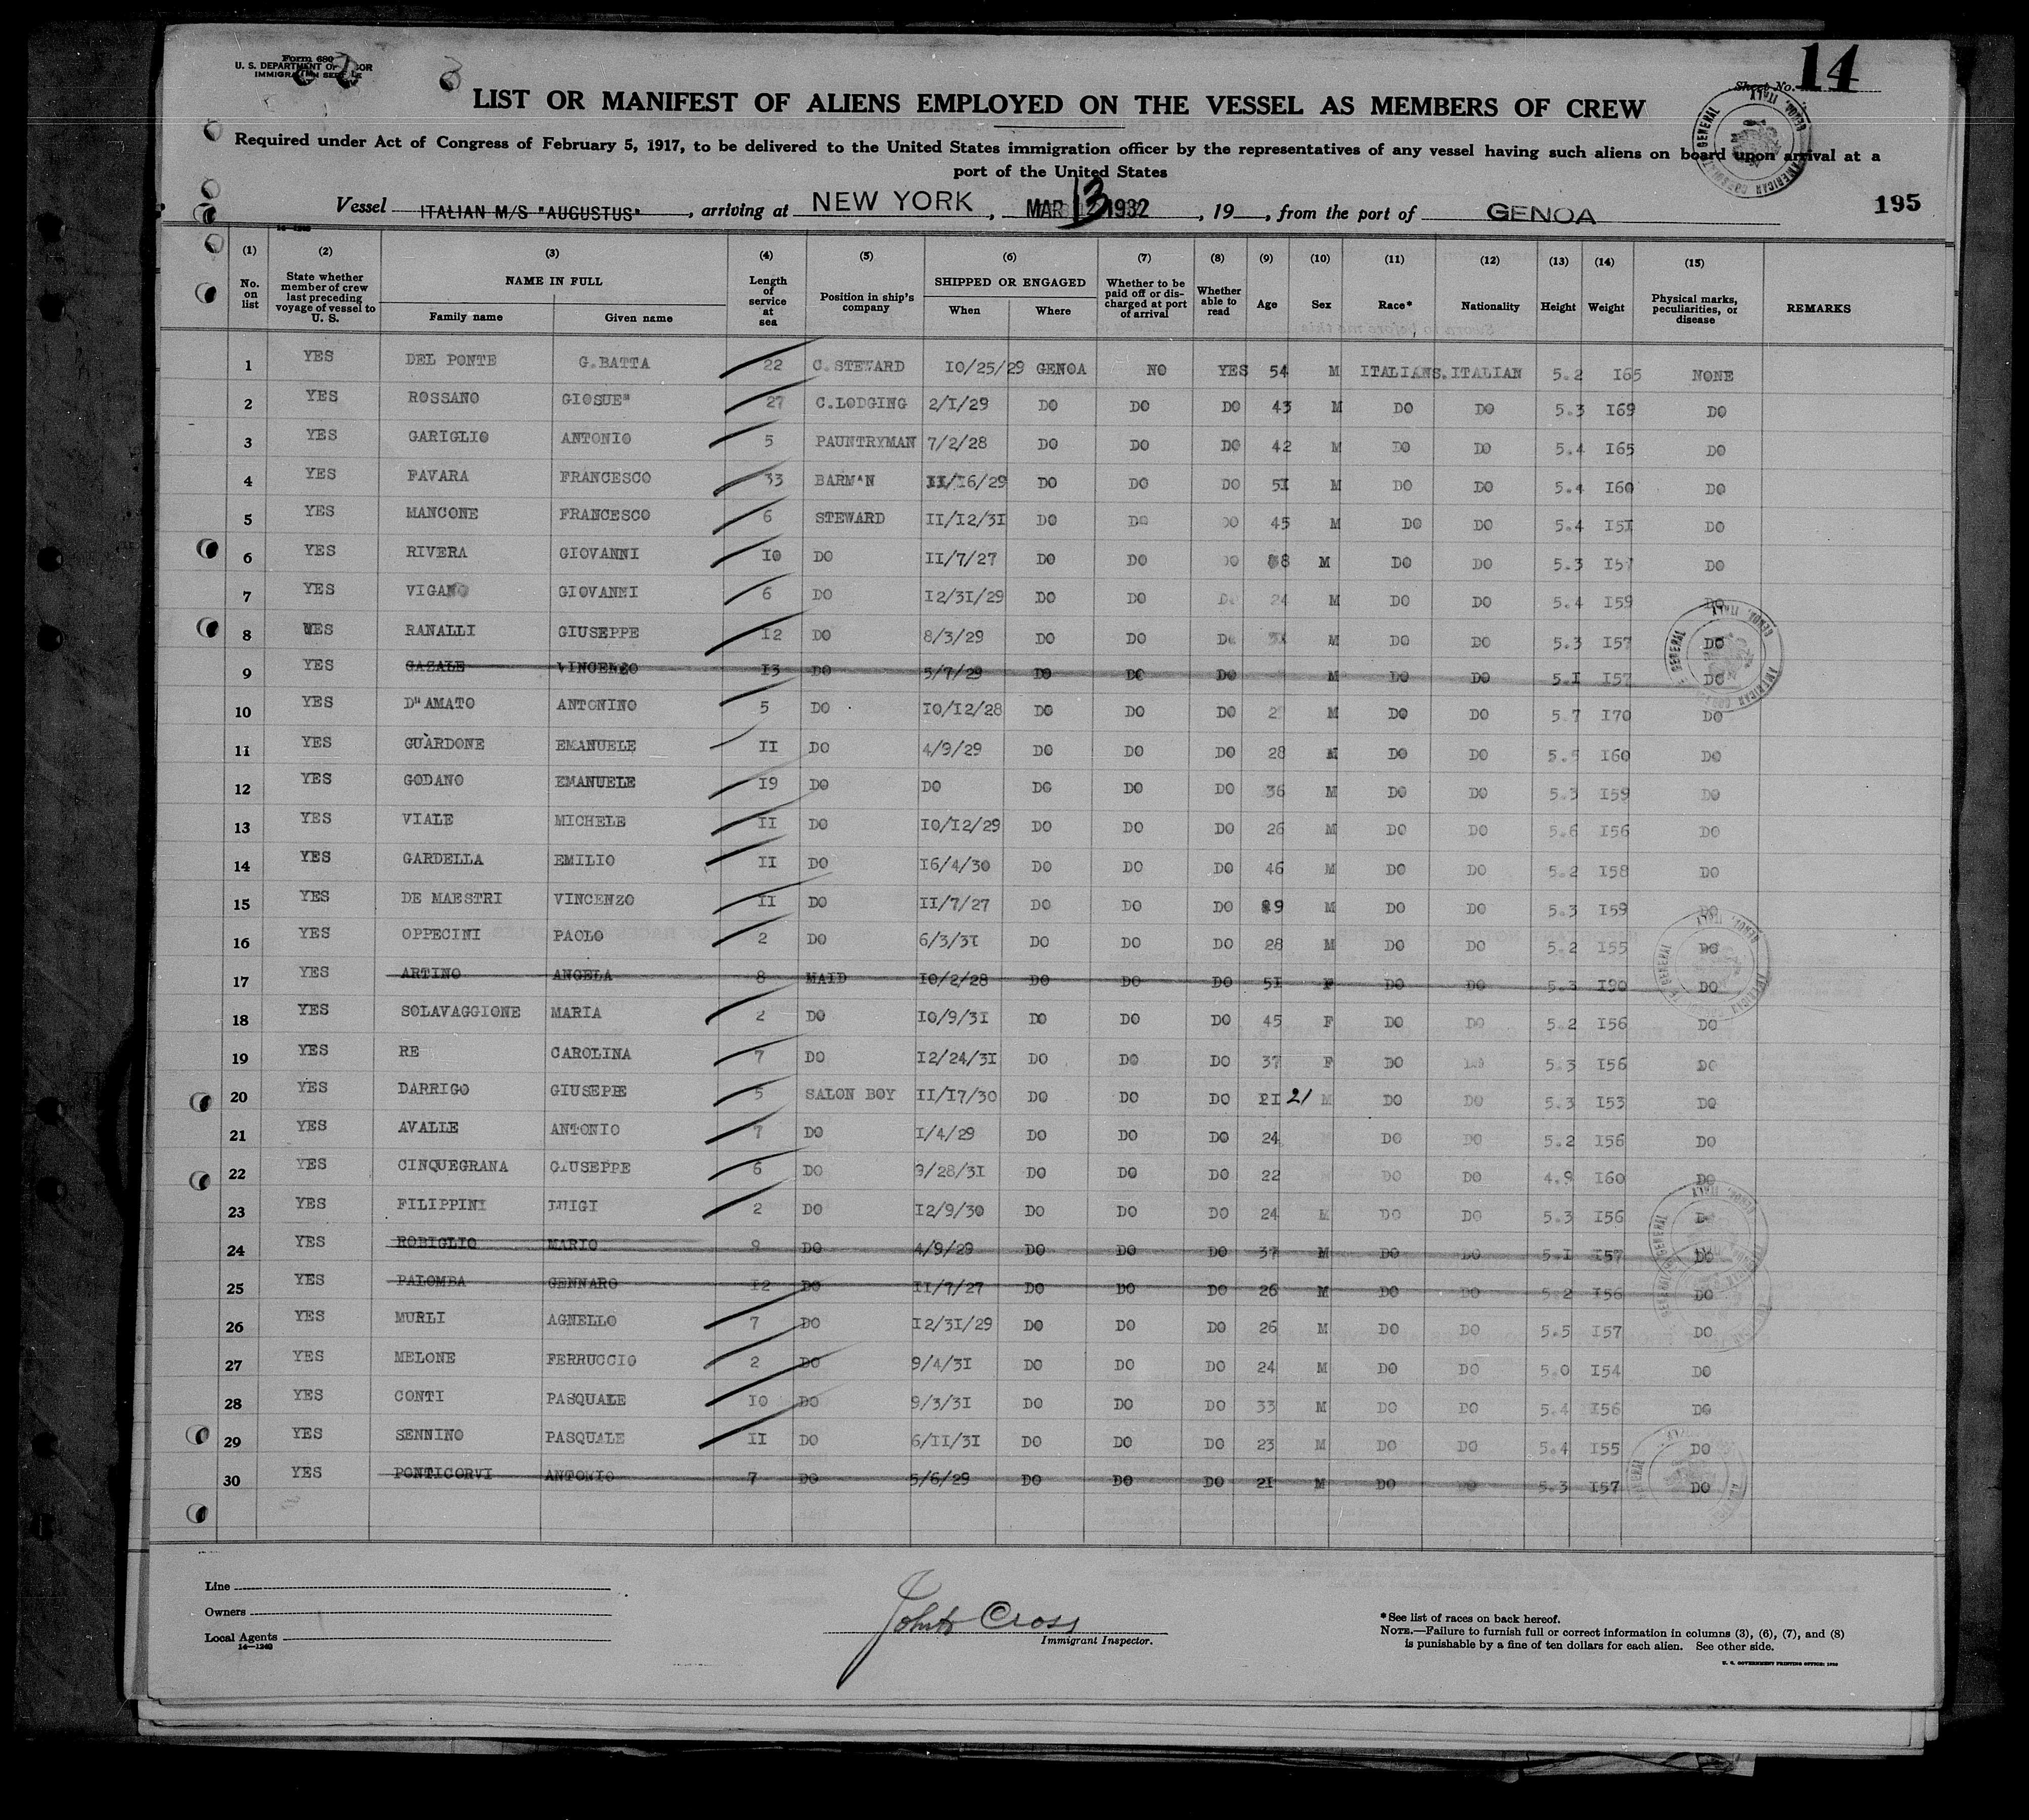 Form 680
U. S. DEPARTMENT OF LABOR
IMMIGRATION SERVICE
Sheet No. 14
LIST OR MANIFEST OF ALIENS EMPLOYED ON THE VESSEL AS MEMBERS OF CREW
Required under Act of Congress of February 5, 1917, to be delivered to the United States immigration officer by the representatives of any vessel having such aliens on board upon arrival at a
port of the United States
195
Vessel ITALIAN M/S "AUGUSTUS", arriving at NEW YORK, MAR 13 1932, 19, from the port of GENOA
14—1240
(1) (2) (3) (4) (5) (6) (7) (8) (9) (10) (11) (12) (13) (14) (15)
No. on list State whether member of crew last preceding voyage of vessel to U. S. NAME IN FULL Family name Given name Length of service at sea Position in ship's company SHIPPED OR ENGAGED When Where Whether to be paid off or discharged at port of arrival Whether able to read Age Sex Race* Nationality Height Weight Physical marks, peculiarities, or disease REMARKS
1 YES DEL PONTE G.BATTA 22 C.STEWARD 10/25/29 GENOA NO YES 54 M ITALIANS. ITALIAN 5.2 165 NONE
2 YES ROSSANO GIOSUE" 27 C.LODGING 2/1/29 DO DO DO 43 M DO DO 5.3 169 DO
3 YES GARIGLIO ANTONIO 5 PAUNTRYMAN 7/2/28 DO DO DO 42 M DO DO 5.4 165 DO
4 YES FAVARA FRANCESCO 33 BARMAN 11/16/29 DO DO DO 51 M DO DO 5.4 160 DO
5 YES MANCONE FRANCESCO 6 STEWARD 11/12/31 DO DO DO 45 M DO DO 5.4 151 DO
6 YES RIVERA GIOVANNI 10 DO 11/7/27 DO DO DO M DO DO 5.3 157 DO
7 YES VIGANO GIOVANNI 6 DO 12/31/29 DO DO DO 24 M DO DO 5.4 159 DO
8 YES RANALLI GIUSEPPE 12 DO 8/3/29 DO DO DO M DO DO 5.3 157 DO
9 YES CAZALE VINCENZO 13 DO 5/7/29 DO DO DO M DO DO 5.1 157 DO
10 YES D"AMATO ANTONINO 5 DO 10/12/28 DO DO DO M DO DO 5.7 170 DO
11 YES GUARDONE EMANUELE 11 DO 4/9/29 DO DO DO 28 M DO DO 5.5 160 DO
12 YES GODANO EMANUELE 19 DO DO DO DO DO 36 M DO DO 5.3 159 DO
13 YES VIALE MICHELE 11 DO 10/12/29 DO DO DO 26 M DO DO 5.6 156 DO
14 YES GARDELLA EMILIO 11 DO 16/4/30 DO DO DO 46 M DO DO 5.2 158 DO
15 YES DE MAESTRI VINCENZO 11 DO 11/7/27 DO DO DO M DO DO 5.3 159 DO
16 YES OPPECINI PAOLO 2 DO 6/3/31 DO DO DO 28 M DO DO 5.2 155 DO
17 YES ARTINO ANGELA 8 MAID 10/2/28 DO DO DO 51 F DO DO 5.3 190 DO
18 YES SOLAVAGGIONE MARIA 2 DO 10/9/31 DO DO DO 45 F DO DO 5.2 156 DO
19 YES RE CAROLINA 7 DO 12/24/31 DO DO DO 37 F DO DO 5.3 156 DO
20 YES DARRIGO GIUSEPPE 5 SALON BOY 11/17/30 DO DO DO 21 21 M DO DO 5.3 153 DO
21 YES AVALLE ANTONIO 7 DO 1/4/29 DO DO DO 24 DO DO 5.2 156 DO
22 YES CINQUEGRANA GIUSEPPE 6 DO 9/28/31 DO DO DO 22 DO DO 4.9 160 DO
23 YES FILIPPINI LUIGI 2 DO 12/9/30 DO DO DO 24 M DO DO 5.3 156 DO
24 YES ROBIGLIO MARIO 9 DO 4/9/29 DO DO DO 37 M DO DO 5.1 157 DO
25 YES PALOMBA GENNARO 12 DO 11/7/27 DO DO DO 26 M DO DO 5.2 156 DO
26 YES MURLI AGNELLO 7 DO 12/31/29 DO DO DO 26 M DO DO 5.5 157 DO
27 YES MELONE FERRUCCIO 2 DO 9/4/31 DO DO DO 24 M DO DO 5.0 154 DO
28 YES CONTI PASQUALE 10 DO 9/3/31 DO DO DO 33 M DO DO 5.4 156 DO
29 YES SENNINO PASQUALE 11 DO 6/11/31 DO DO DO 23 M DO DO 5.4 155 DO
30 YES PONTICORVI ANTONIO 7 DO 5/6/29 DO DO DO 21 M DO DO 5.3 157 DO
Line
Owners
Local Agents
14—1240
John Cross
Immigrant Inspector.
*See list of races on back hereof.
NOTE.—Failure to furnish full or correct information in columns (3), (6), (7), and (8)
is punishable by a fine of ten dollars for each alien. See other side.
U. S. GOVERNMENT PRINTING OFFICE: 1930